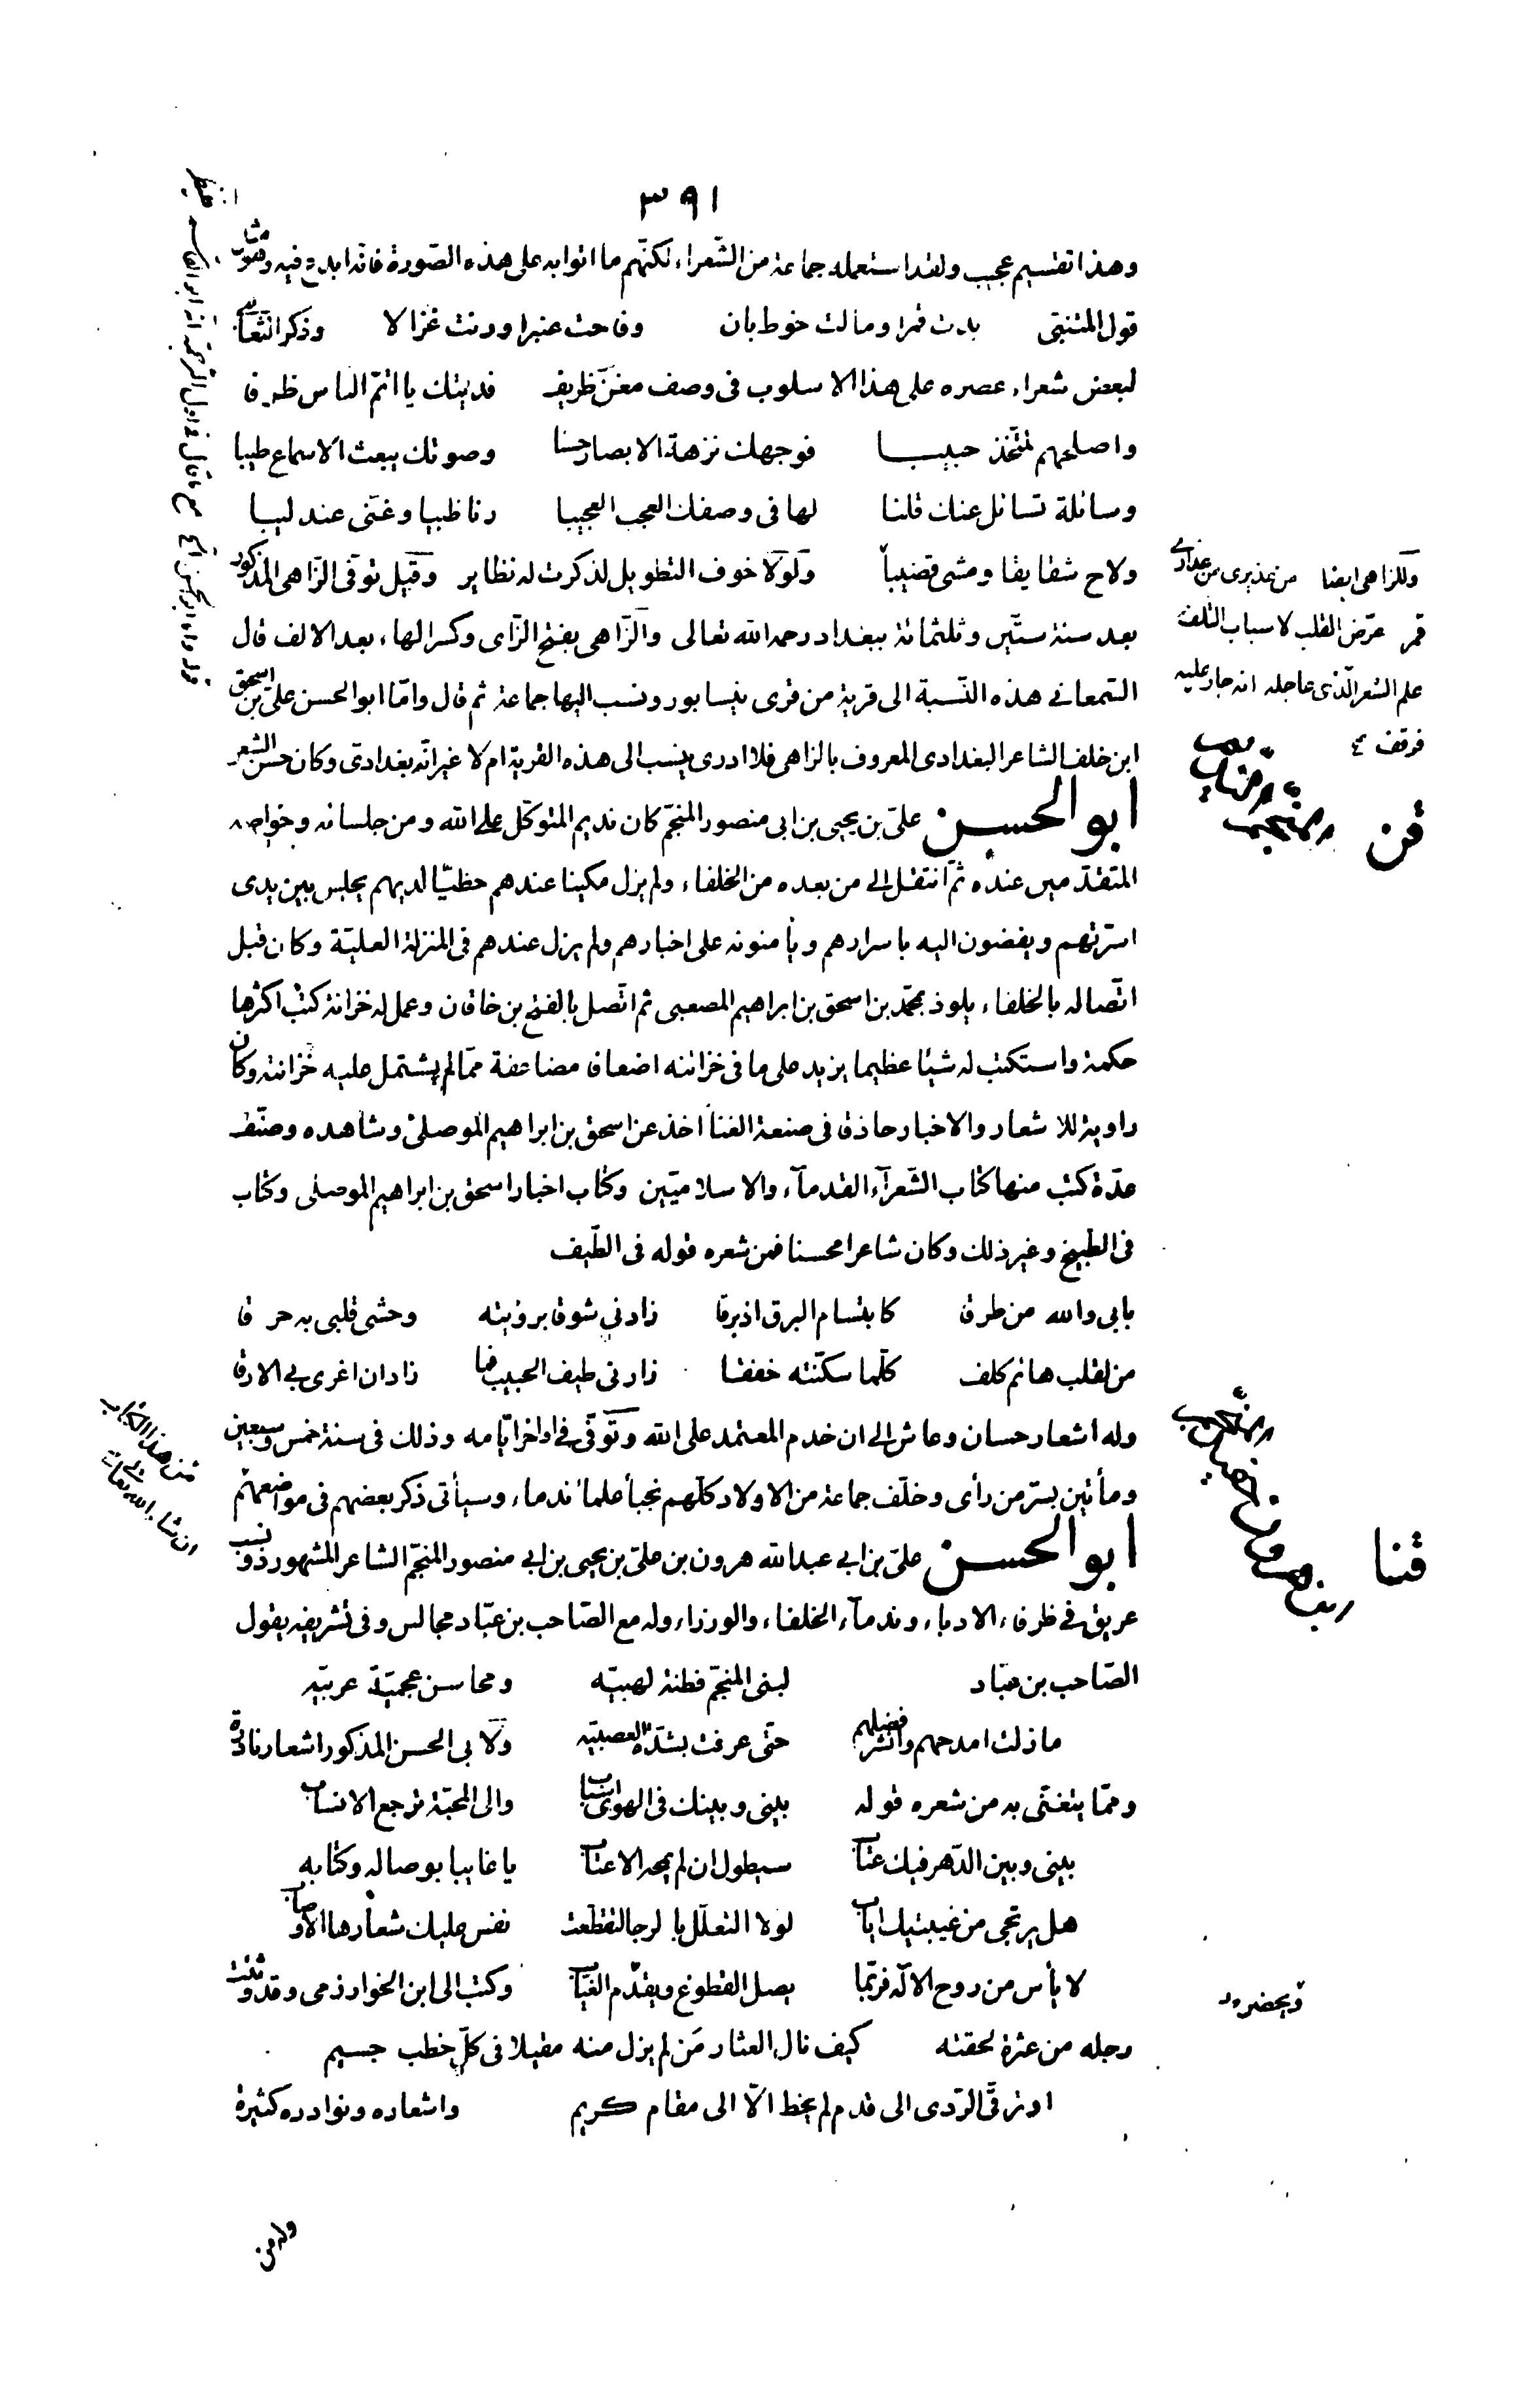 ٣٩١
وهذا تقسيم عجيب ولقد استعمله جماعة من الشعراء لكنهم ما اتوا به على هذه الصورة فانه ابدع فيه وهو مثل
قول المتنبى بدت قمرا ومالت خوط بان وفاحت عنبرا ورنت غزالا وذكر الثعالبى
لبعض شعراء عصره على هذا الاسلوب فى وصف مغنّ ظريف فديتك يا اتمّ الناس ظرفا
واصلحهم لمتّخذ حبيبا فوجهك نزهة الابصار حسنا وصوتك يبعث الاسماع طيبا
وسائلة تسائل عنك قلنا لها فى وصفك العجب العجيبا رنا ظبيا وغنّى عندليبا
ولاح شقايقا ومشى قضيباً ولولا خوف التطويل لذكرت له نظاير وقيل توفى الزاهى المذكور
بعد سنة ستّين وثلثمائة ببغداد رحمه الله تعالى والزاهى بفتح الزاى وكسر الهاء بعد الالف قال
السمعانى هذه النسبة الى قرية من قرى نيسابور ونسب اليها جماعة ثم قال وامّا ابو الحسن علىّ بن اسحق
ابن خلف الشاعر البغدادى المعروف بالزاهى فلا ادرى ينسب الى هذه القرية ام لا غير انّه بغدادى وكان حسن الشعر
وللزاهى ايضا من عذيرى من عذارى
قمر عرّض القلب لاسباب التلف
علم الشعر الّذى عاجله انه جار عليه
فوقف
قن
ابو الحسن علىّ بن يحيى بن ابى منصور المنجّم كان نديم المتوكّل على الله ومن جلسائه وخواصه
المتقدّمين عنده ثمّ انتقل الى من بعده من الخلفاء ولم يزل مكينا عندهم حظيّا لديهم يجلس بين يدى
اسرّتهم ويفضون اليه باسرارهم ويأمنونه على اخبارهم ولم يزل عندهم فى المنزلة العليّة وكان قبل
اتّصاله بالخلفاء يلوذ بمحمّد بن اسحق بن ابراهيم المصعبى ثم اتّصل بالفتح بن خاقان وعمل له خزانة كتب اكثرها
حكمة واستكتب له شيئا عظيما يزيد على ما فى خزانته اضعاف مضاعفة ممّا لم يشتمل عليه خزانته وكان
راوية للاشعار والاخبار حاذقا فى صنعة الغنا اخذ عن اسحق بن ابراهيم الموصلىّ وشاهده وصنّف
عدّة كتب منها كتاب الشعرآء القدمآء والاسلاميّين وكتاب اخبار اسحق بن ابراهيم الموصلى وكتاب
فى الطبيخ وغير ذلك وكان شاعرا محسنا فمن شعره قوله فى الطيف
بابى والله من طرقا كابتسام البرق اذ برقا زادنى شوقا برؤيته وحشى قلبى به حرقا
من لقلب هائم كلف كلّما سكّنته خفقا زارنى طيف الحبيب فما زاد ان اغرى بى الارقا
وله اشعار حسان وعاش الى ان خدم المعتمد على الله وتوفّى فى اواخر ايّامه وذلك فى سنة خمس وسبعين
ومأتين بسرّ من رأى وخلّف جماعة من الاولاد كلّهم نجبأ علمأ ندماء وسيأتى ذكر بعضهم فى مواضعهم
من هذا الكتاب
ان شاء الله تعالى
قنا
ابو الحسن علىّ بن ابى عبد الله هرون بن علىّ بن يحيى بن ابى منصور المنجّم الشاعر المشهور ذو نسب
عريق فى ظرفاء الادباء وندمآء الخلفاء والوزراء وله مع الصاحب بن عبّاد مجالس وفى تشريفه يقول
الصاحب بن عبّاد لبنى المنجّم فطنة لهبيّه ومحاسن عجميّة عربيّه
ما زلت امدحهم وانشر فضلهم حتى عرفت بشدّة العصبيّه ولابى الحسن المذكور اشعار نادرة
وممّا يتغنّى به من شعره قوله بينى وبينك فى الهوى انساب والى المحبّة ترجع الانساب
بينى وبين الدّهر فيك عتاب سيطول ان لم يمحه الاعتاب يا غايبا بوصاله وكتابه
هل يرتجى من غيبتيك اياب لولا التعلّل بالرجا لتقطّعت نفس عليك شعارها الاوصاب
لا يأس من روح الاله فربّما يصل القطوع ويقدم الغيّاب وكتب الى ابن الخوارزمى وقد وثئت
ويحضر
رجله من عثرة لحقته كيف نال العثار مَن لم يزل منه مقيلا فى كلّ خطب جسيم
او ترقّى الردى الى قدم لم يخط الاّ الى مقام كريم واشعاره ونوادره كثيرة
وله من